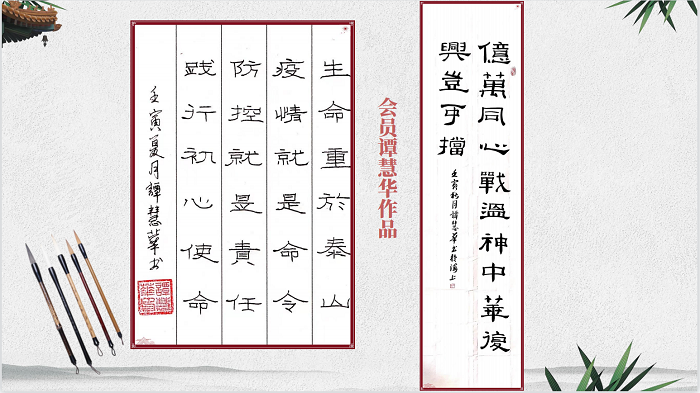 億萬同心戰溫神中華復
興豈可擋
壬寅秋月譚慧華书於海上
会员谭慧华作品
生命重於泰山
疫情就是命令
防控就是責任
践行初心使命
壬寅夏月譚慧華书